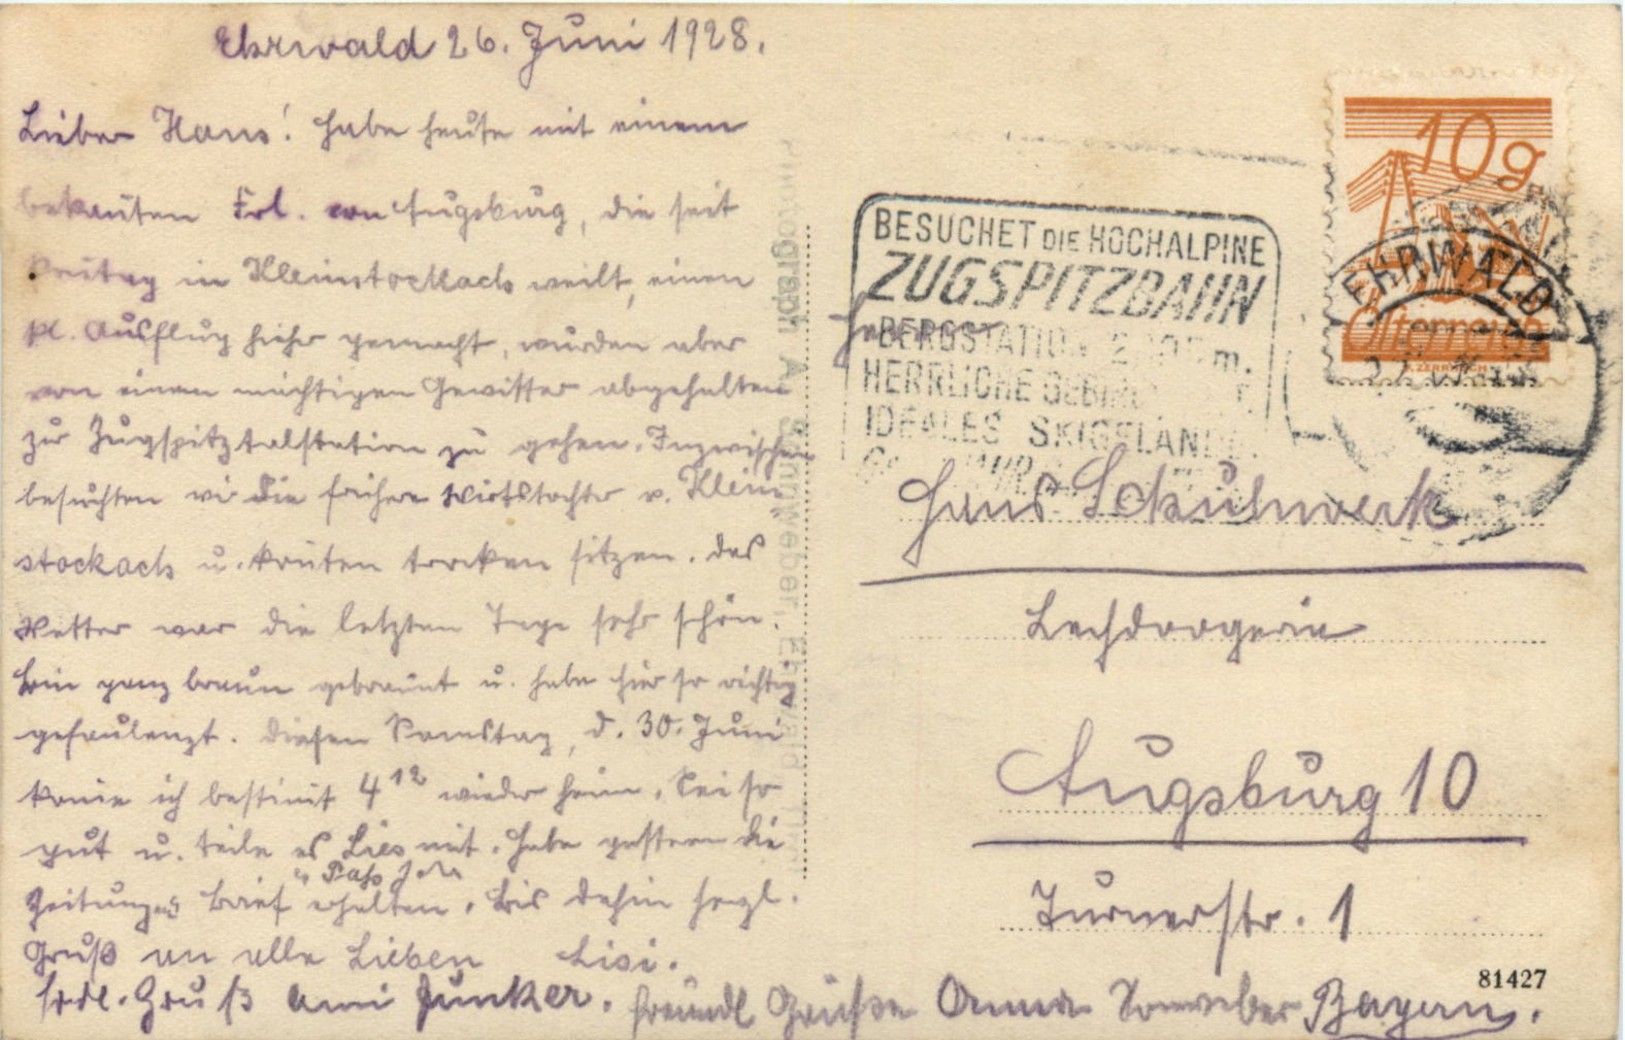 Ehrwald 26. Juni 1928.
Lieber Hans! Habe heute mit einem
bekannten Frl. von Augsburg, die seit
Freitag in Kleinstockach weilt, einen
kl. Ausflug hieher gemacht, wurden aber
von einem mächtigen Gewitter abgehalten
zur Zugspitztalstation zu gehen. Inzwischen
besuchten wir die frühere Wirtstochter v. Klein
stockach u. konnten trocken sitzen. Das
Wetter war die letzten Tage sehr schön.
Bin ganz braun gebrannt u. habe hier so richtig
gefaulenzt. Diesen Samstag, d. 30. Juni
komme ich bestimmt 4 12 wieder heim. Sei so
gut u. teile es Lies mit. Habe gestern die
Zeitung Brief erhalten. Bis dahin herzl.
Gruß an alle Lieben Lisi.
frdl. Gruß Ami Junker. freundl Grüße Anna
Photograph A. Sonnweber, Ehrwald Tirol
BESUCHET DIE HOCHALPINE
ZUGSPITZBAHN
BERGSTATION 2 m.
HERRLICHE
IDEALES SKIGELÄNDE
10g
Österreich
EHRWALD
Herrn
Hans Schuhwerk
Lechdrogerie
Augsburg 10
Turnerstr. 1
81427
Bayern.